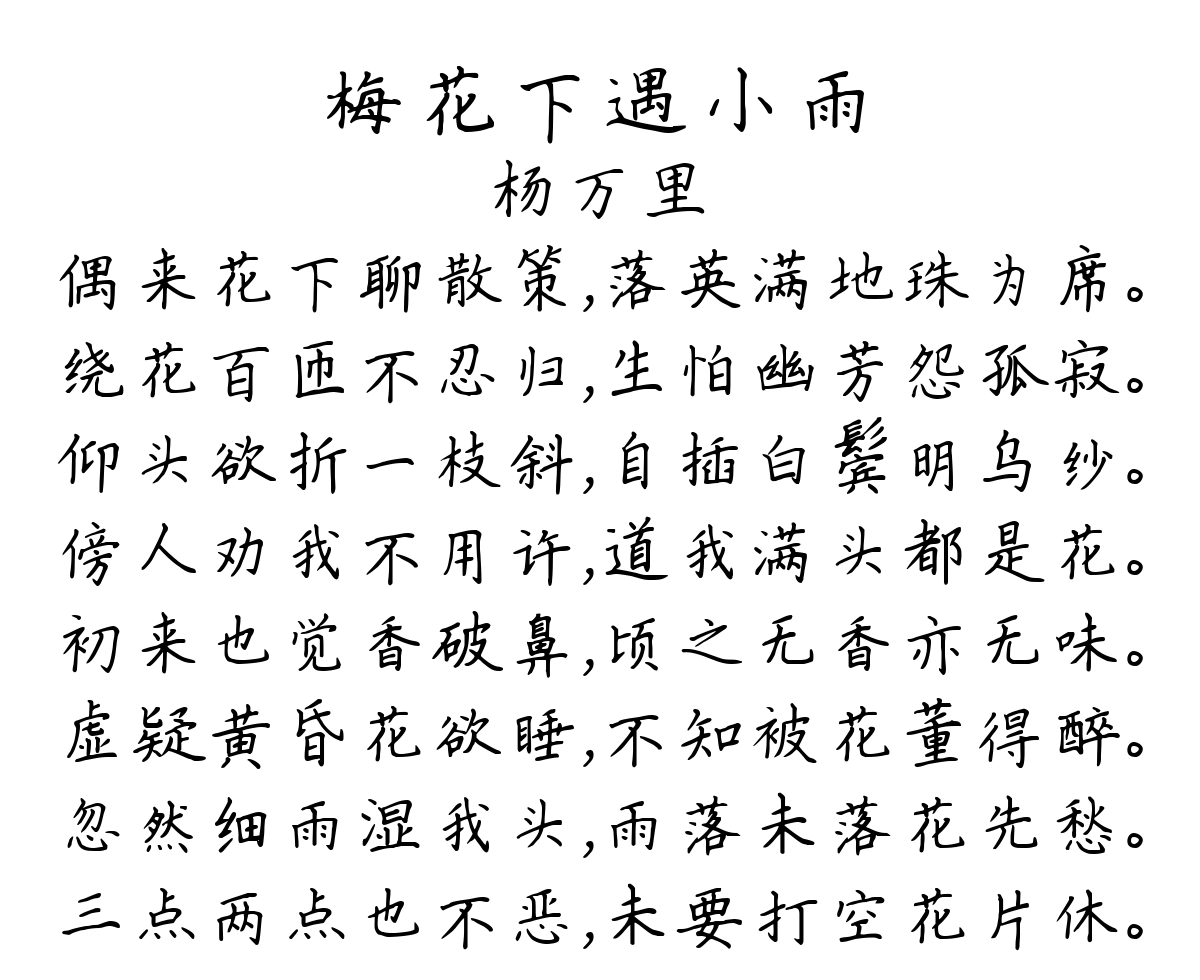 梅花下遇小雨
杨万里
偶来花下聊散策,落英满地珠为席。
绕花百匝不忍归,生怕幽芳怨孤寂。
仰头欲折一枝斜,自插白鬓明乌纱。
傍人劝我不用许,道我满头都是花。
初来也觉香破鼻,顷之无香亦无味。
虚疑黄昏花欲睡,不知被花董得醉。
忽然细雨湿我头,雨落未落花先愁。
三点两点也不恶,未要打空花片休。